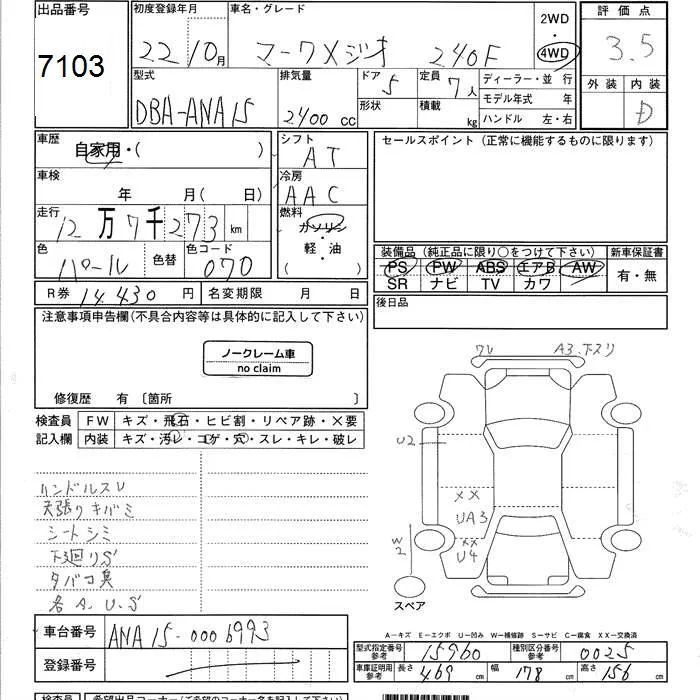 出品番号 初度登録年月 車名・グレード 2WD 評価点
7103 22 10月 マークXジオ 240F ・ 4WD 3.5
型式 排気量 ドア 5 定員 7人 ディーラー・並 行 外装 内装
DBA-ANA15 2400 cc 形状 積載 kg モデル年式 年 D
ハンドル 左・右
車歴 自家用・( ) シフト AT セールスポイント (正常に機能するものに限ります)
車検 年 月( 日) 冷房 AAC
走行 12万7千273 km 燃料 ガソリン
軽・油
( )
色 パール 色替 色コード 070 装備品 (純正品に限り○をつけて下さい) 新車保証書
PS PW ABS エアB AW 有・無
SR ナビ TV カワ
R券 14,430 円 名変期限 月 日 後日品
注意事項申告欄(不具合内容等は具体的に記入して下さい)
ノークレーム車
no claim
修復歴 有 〔箇所 〕
ワレ A3.下スリ
検査員 FW キズ・飛石・ヒビ割・リペア跡・X要
記入欄 内装 キズ・汚レ・コゲ・穴・スレ・キレ・破レ
U2
ハンドルスレ
天張りキバミ
シートシミ
下廻りS
タバコ臭
各A.U.S
XX
UA3
XX
U4
W2
スペア
A−キズ E−エクボ U−凹み W−補修跡 S−サビ C−腐食 XX−交換済
車台番号 ANA15-0006993
型式指定番号 参考 15960 種別区分番号 参考 0025
登録番号
車庫証明用 参考 長さ 469 幅 178 高さ 156
検査員 希望出品コーナー(ご希望のコーナー名を記入下さい)